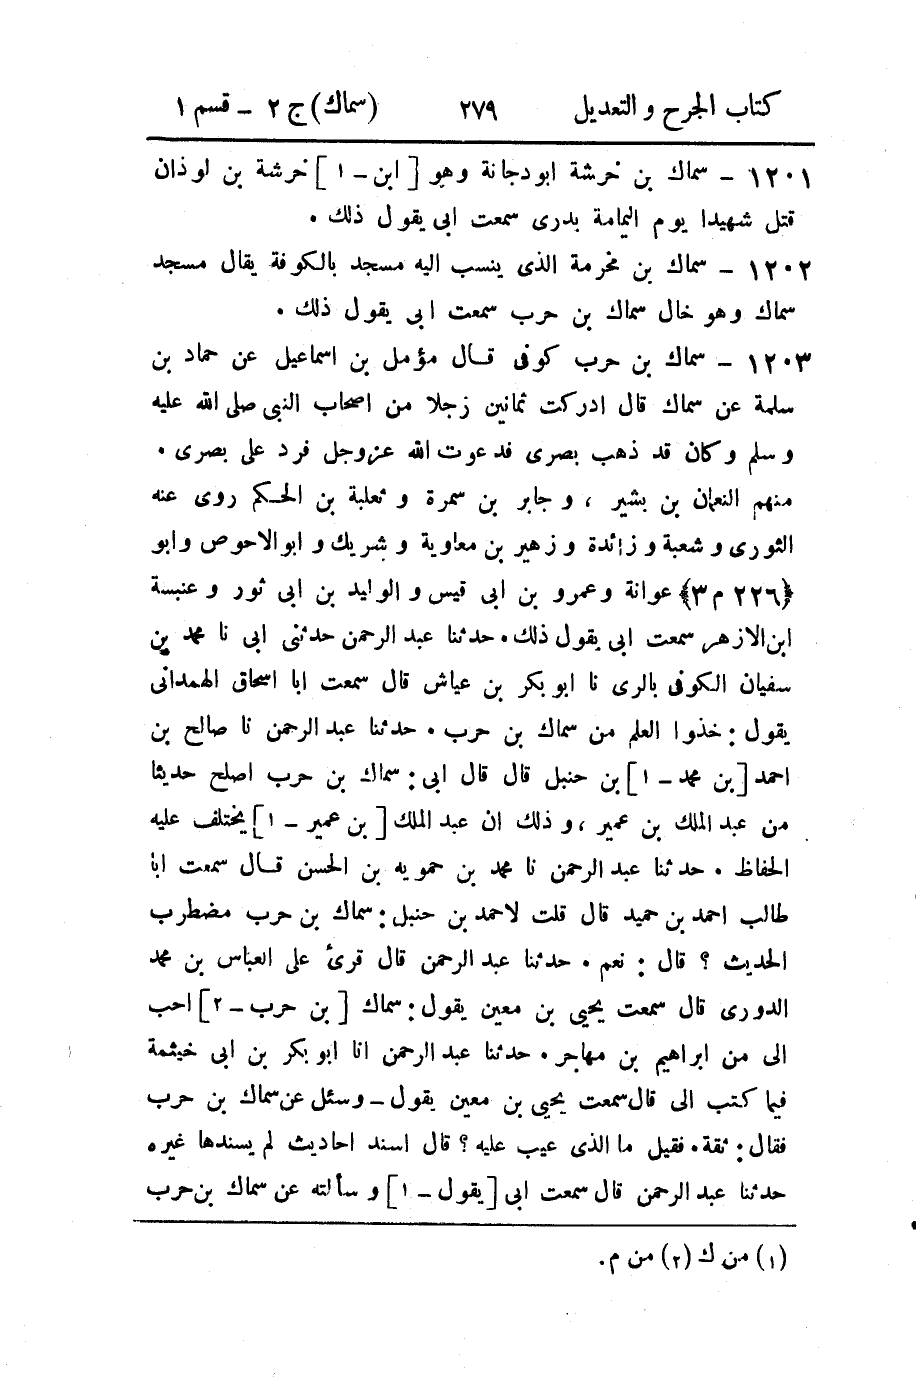 كتاب الجرح و التعديل ٢٧٩ (سماك) ج ٢ ـ قسم ١
١٢٠١ ـ سماك بن خرشة ابودجانة وهو [ ابن ـ ١ ] خرشة بن لوذان
قتل شهيدا يوم اليمامة بدرى سمعت ابى يقول ذلك .
١٢٠٢ ـ سماك بن مخرمة الذى ينسب اليه مسجد بالكوفة يقال مسجد
سماك وهو خال سماك بن حرب سمعت ابى يقول ذلك .
١٢٠٣ ـ سماك بن حرب كوفى قال مؤمل بن اسماعيل عن حماد بن
سلمة عن سماك قال ادركت ثمانين رجلا من اصحاب النبى صلى الله عليه
و سلم وكان قد ذهب بصرى فدعوت الله عزوجل فرد على بصرى .
منهم النعمان بن بشير ، و جابر بن سمرة و ثعلبة بن الحكم روى عنه
الثورى و شعبة و زائدة و زهير بن معاوية و شريك و ابوالاحوص وابو
﴿٢٢٦ م ٣﴾ عوانة وعمرو بن ابى قيس و الوليد بن ابى ثور و عنبسة
ابن الازهر سمعت ابى يقول ذلك . حدثنا عبد الرحمن حدثنى ابى نا محمد بن
سفيان الكوفى بالرى نا ابو بكر بن عياش قال سمعت ابا اسحاق الهمدانى
يقول : خذوا العلم من سماك بن حرب . حدثنا عبد الرحمن نا صالح بن
احمد [ بن محمد ـ ١ ] بن حنبل قال قال ابى : سماك بن حرب اصلح حديثا
من عبد الملك بن عمير ، و ذلك ان عبد الملك [ بن عمير ـ ١ ] يختلف عليه
الحفاظ . حدثنا عبد الرحمن نا محمد بن حمويه بن الحسن قال سمعت ابا
طالب احمد بن حميد قال قلت لاحمد بن حنبل : سماك بن حرب مضطرب
الحديث ؟ قال : نعم . حدثنا عبد الرحمن قال قرئ على العباس بن محمد
الدورى قال سمعت يحيى بن معين يقول : سماك [ بن حرب ـ ٢ ] احب
الى من ابراهيم بن مهاجر . حدثنا عبد الرحمن انا ابو بكر بن ابى خيثمة
فيما كتب الى قال سمعت يحيى بن معين يقول ـ وسئل عن سماك بن حرب
فقال : ثقة . فقيل ما الذى عيب عليه ؟ قال اسند احاديث لم يسندها غيره
حدثنا عبد الرحمن قال سمعت ابى [ يقول ـ ١ ] و سألته عن سماك بن حرب
(١) من ك (٢) من م .